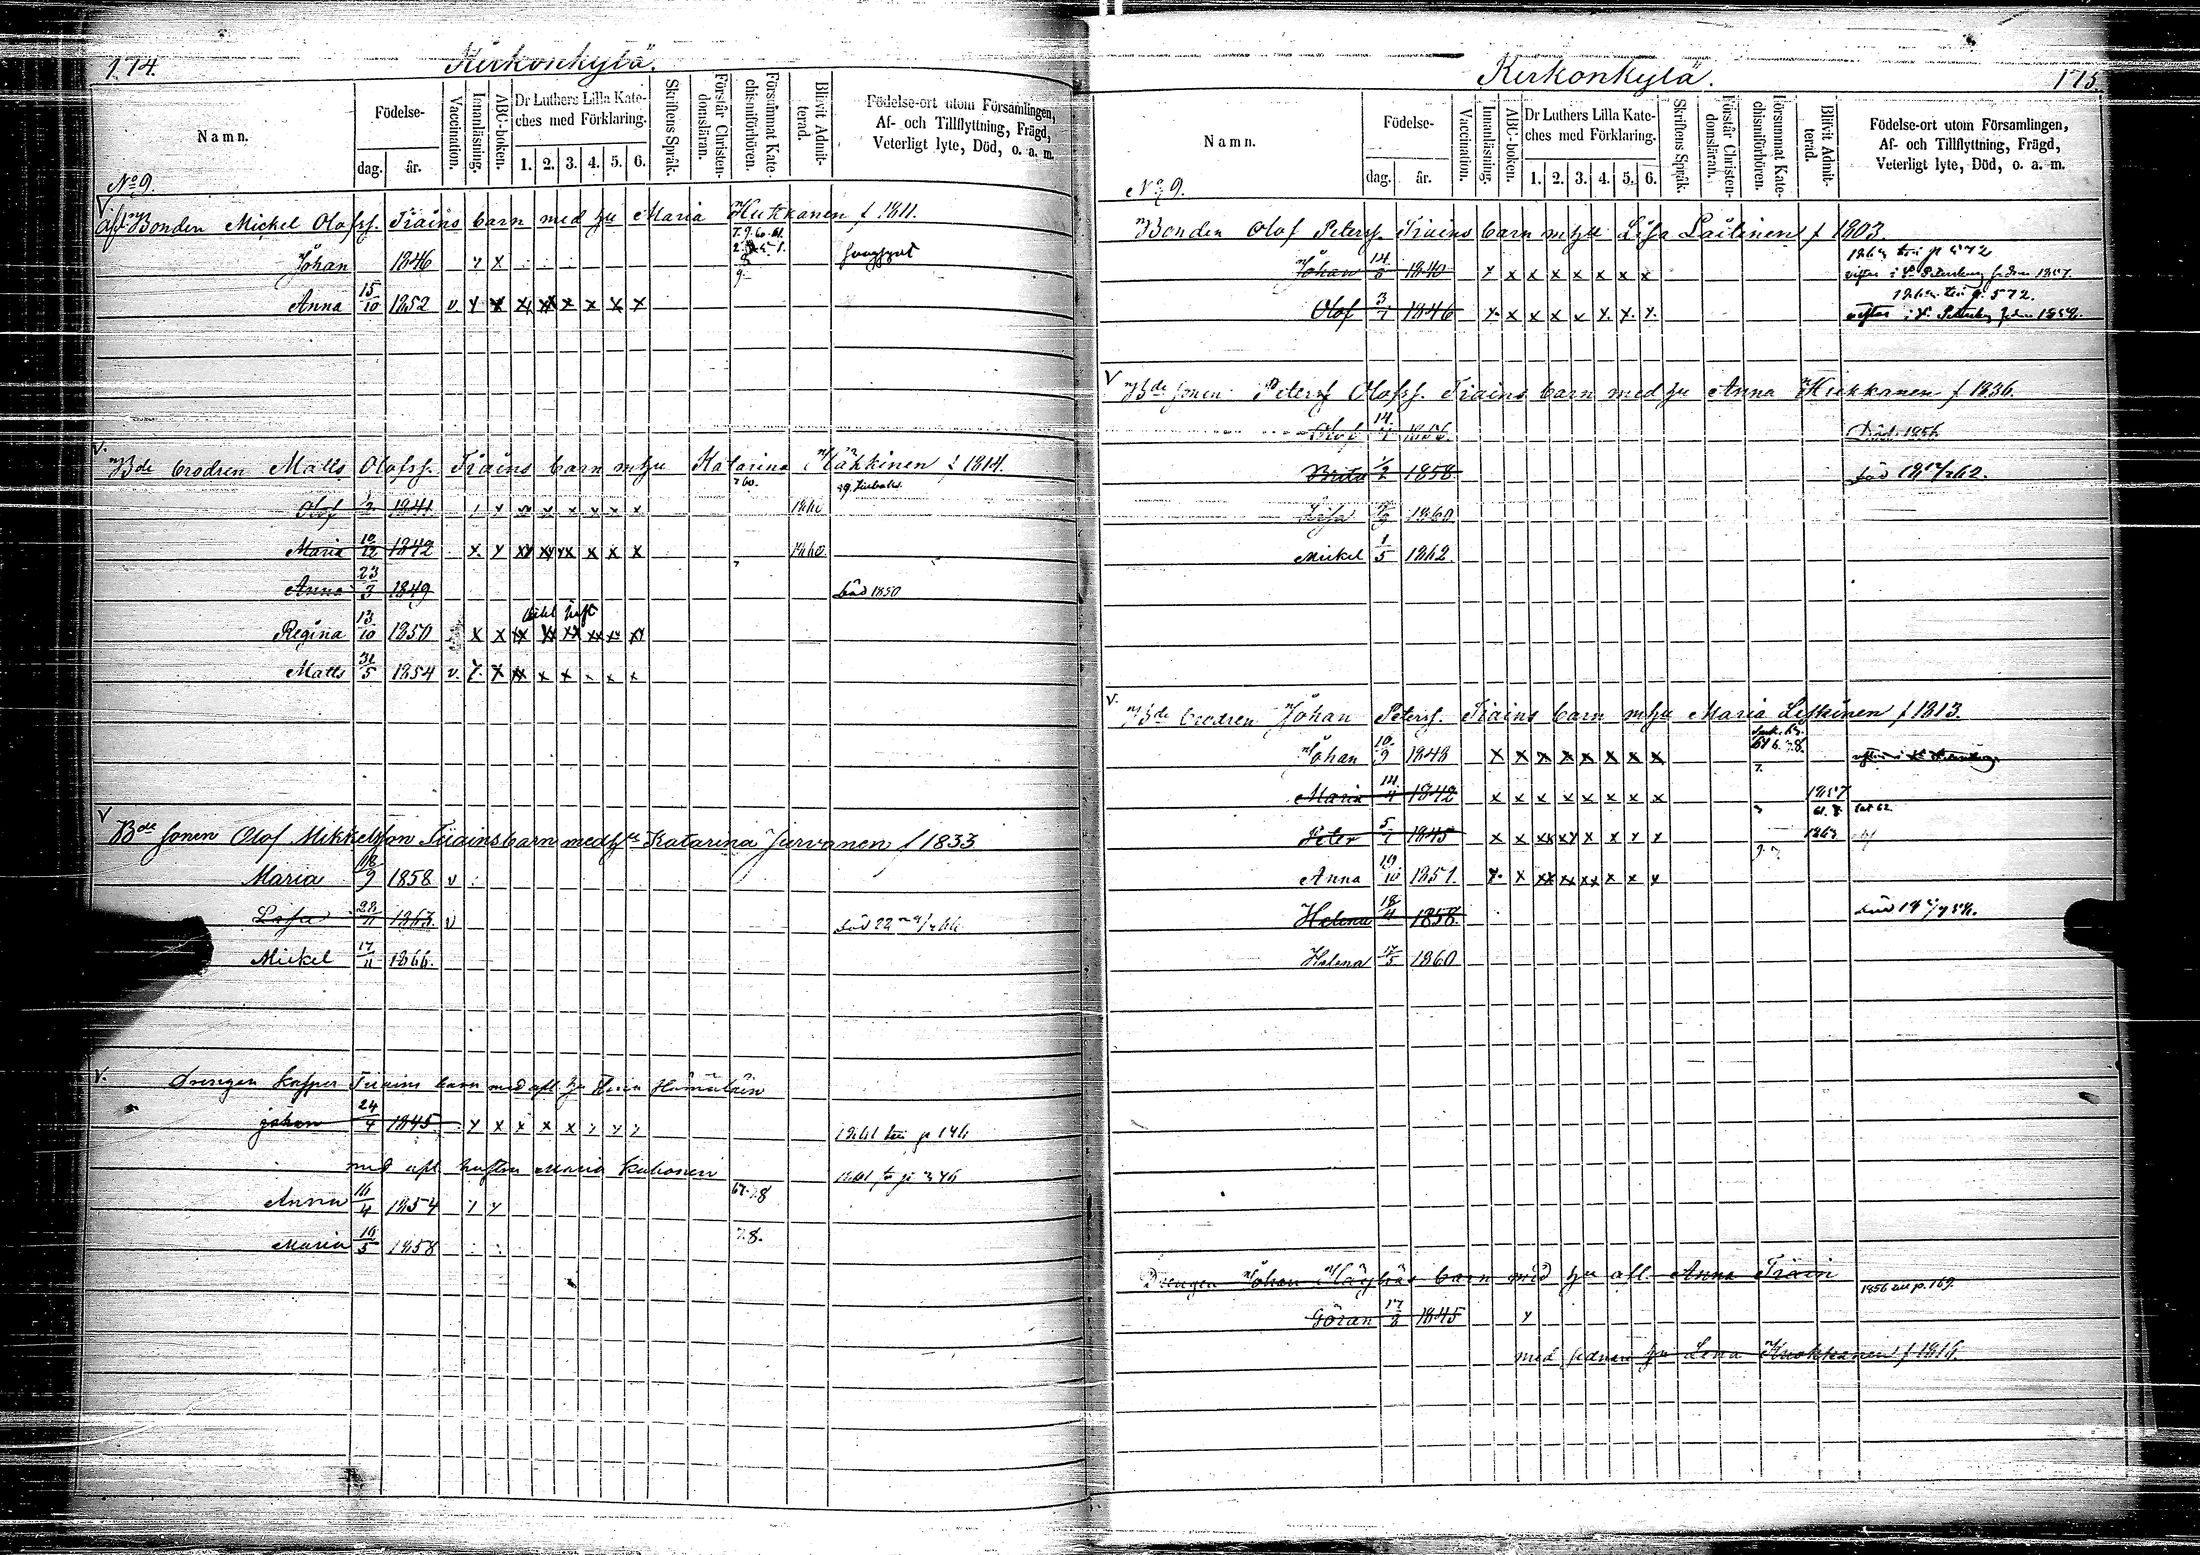 174.
Kirkonkylä.
Namn.
Födelse-
dag.
år.
Vaccination.
Innanläsning.
ABC-boken.
Dr Luthers Lilla Kate-
ches med Förklaring.
1. 2. 3. 4. 5. 6.
Skriftens Språk.
Förstår Christen-
domsläran.
Försummat Kate-
chismiförhören.
Blifvit Admit-
terad.
Födelse-ort utom Församlingen,
Af- och Tillflyttning, Frägd,
Veterligt lyte, Död, o. a. m.
No 9.
Bonden Mickel Olofss. Tiäins barn med hu Maria f 1811.
Johan 1846 y x
Anna 15/10 1852 v. y x x x x x x x
Bde brodren Matts Olofss. Tiäins barn m hu Katarina f 1814.
Olof 1/2 1841 x x x x x x 1860
Maria 10/12 1842 x y xy xy yx x x x 1860
Anna 23/3 1849 död 1850
Regina 13/10 1850 x x xx xx xx xx xx xx
Matts 31/5 1854 v. y. x xx x x x x x
Bde sonen Olof Mikkelsson Tiäins barn med hu Katarina Jurvanen f 1833
Maria 18/9 1858 v
Lisa 23/11 1863 v död
Mickel 17/11 1866.
Drengen Kasper Tiäins barn med afl hu
johan 24/4 1845 y x x x x y y y 1861 till p 146
med afl hustrun Maria
Anna 16/4 1854 y y 67.7.8
Maria 16/5 1858 7.8.
Kirkonkylä.
175.
Namn.
Födelse-
dag.
år.
Vaccination.
Innanläsning.
ABC-boken.
Dr Luthers Lilla Kate-
ches med Förklaring.
1. 2. 3. 4. 5. 6.
Skriftens Språk.
Förstår Christen-
domsläran.
Försummat Kate-
chismiförhören.
Blifvit Admit-
terad.
Födelse-ort utom Församlingen,
Af- och Tillflyttning, Frägd,
Veterligt lyte, Död, o. a. m.
No 9.
Bonden Olof Peterss. Tiäins barn m hu Lisa Laitinen f 1803
till p 572
Johan 14/8 1840 y x x x x x x x
till p. 572.
Olof 3/7 1846 y. x x x x y. y. y.
Bde sonen Peter Olofss. Tiäins barn med hu Anna Hukkanen f 1836.
Olof 1856 Död 1856
Brita 1/2 1858 död
Lisa 1860
Mickel 1/5 1862
Bde brodren Johan Peterss. Tiäins barn m hu Maria f 1813.
Johan 10/9 1848 x x x x x x x x
Maria 14/4 1842 x x x x x x x x 1857
Peter 5/7 1845 x x xx xy x x y y 1863
Anna 19/10 1851. y. x xx xx xx x x x
Helena 18/4 1858 död
Helena 17/5 1860
Drengen Johan barn med hu afl. Anna Tiäin
1856 till p. 169.
Göran 17/8 1845 y
med sednare hu Lena f 1816.